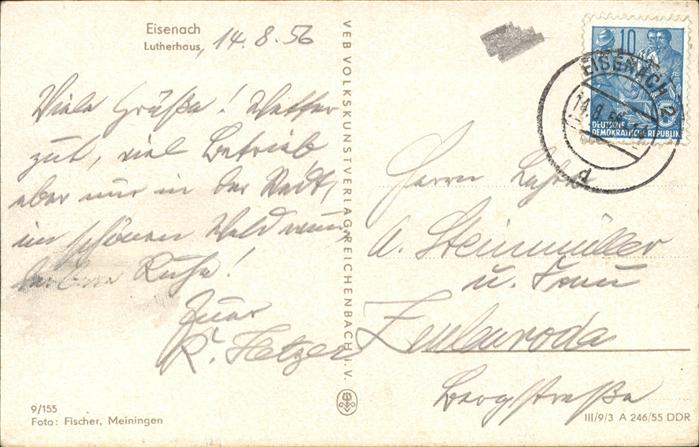 Eisenach
Lutherhaus, 14.8.56
Viele Grüße! Wetter
gut, viel Betrieb
aber nur in der Stadt,
im schönen Wald wun
Ruhe!
Euer
K. Hetzer
9/155
Foto: Fischer, Meiningen
VEB VOLKSKUNSTVERLAG REICHENBACH i. V.
10
DEUTSCHE
DEMOKRATISCHE REPUBLIK
EISENACH 2
d
Herrn
A. Steinmüller
u. Frau
Zeulenroda
Bergstraße
III/9/3 A 246/55 DDR